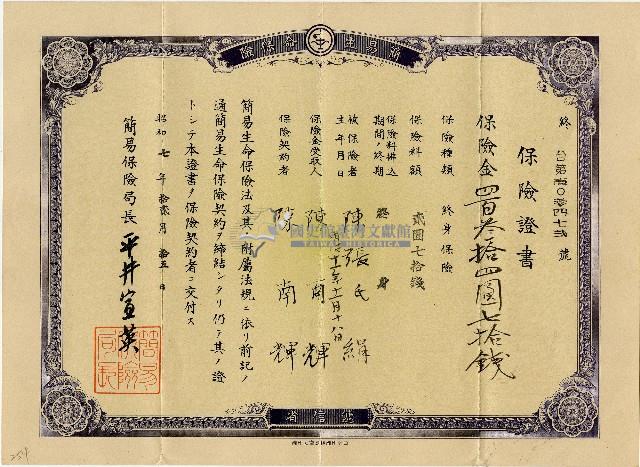 簡易生命保險
終 台第
號
保險證書
保險金四百叁拾四圓七拾錢
保險種類 終身保險
保險料額 貳圓七拾錢
保險料拂込期間ノ終期 終身
被保險者 陳張氏絹
生年月日 十二年十一月十八日
保險金受取人 陳開輝
保險契約者 陳南輝
簡易生命保險法及其ノ附屬法規ニ依リ前記ノ
通簡易生命保險契約ヲ締結シタリ仍テ其ノ證
トシテ本證書ヲ保險契約者ニ交付ス
昭和七年拾貳月拾五日
簡易保險局長 平井宣英
簡易保險局長
遞信省
國史館臺灣文獻館
TAIWAN HISTORICA